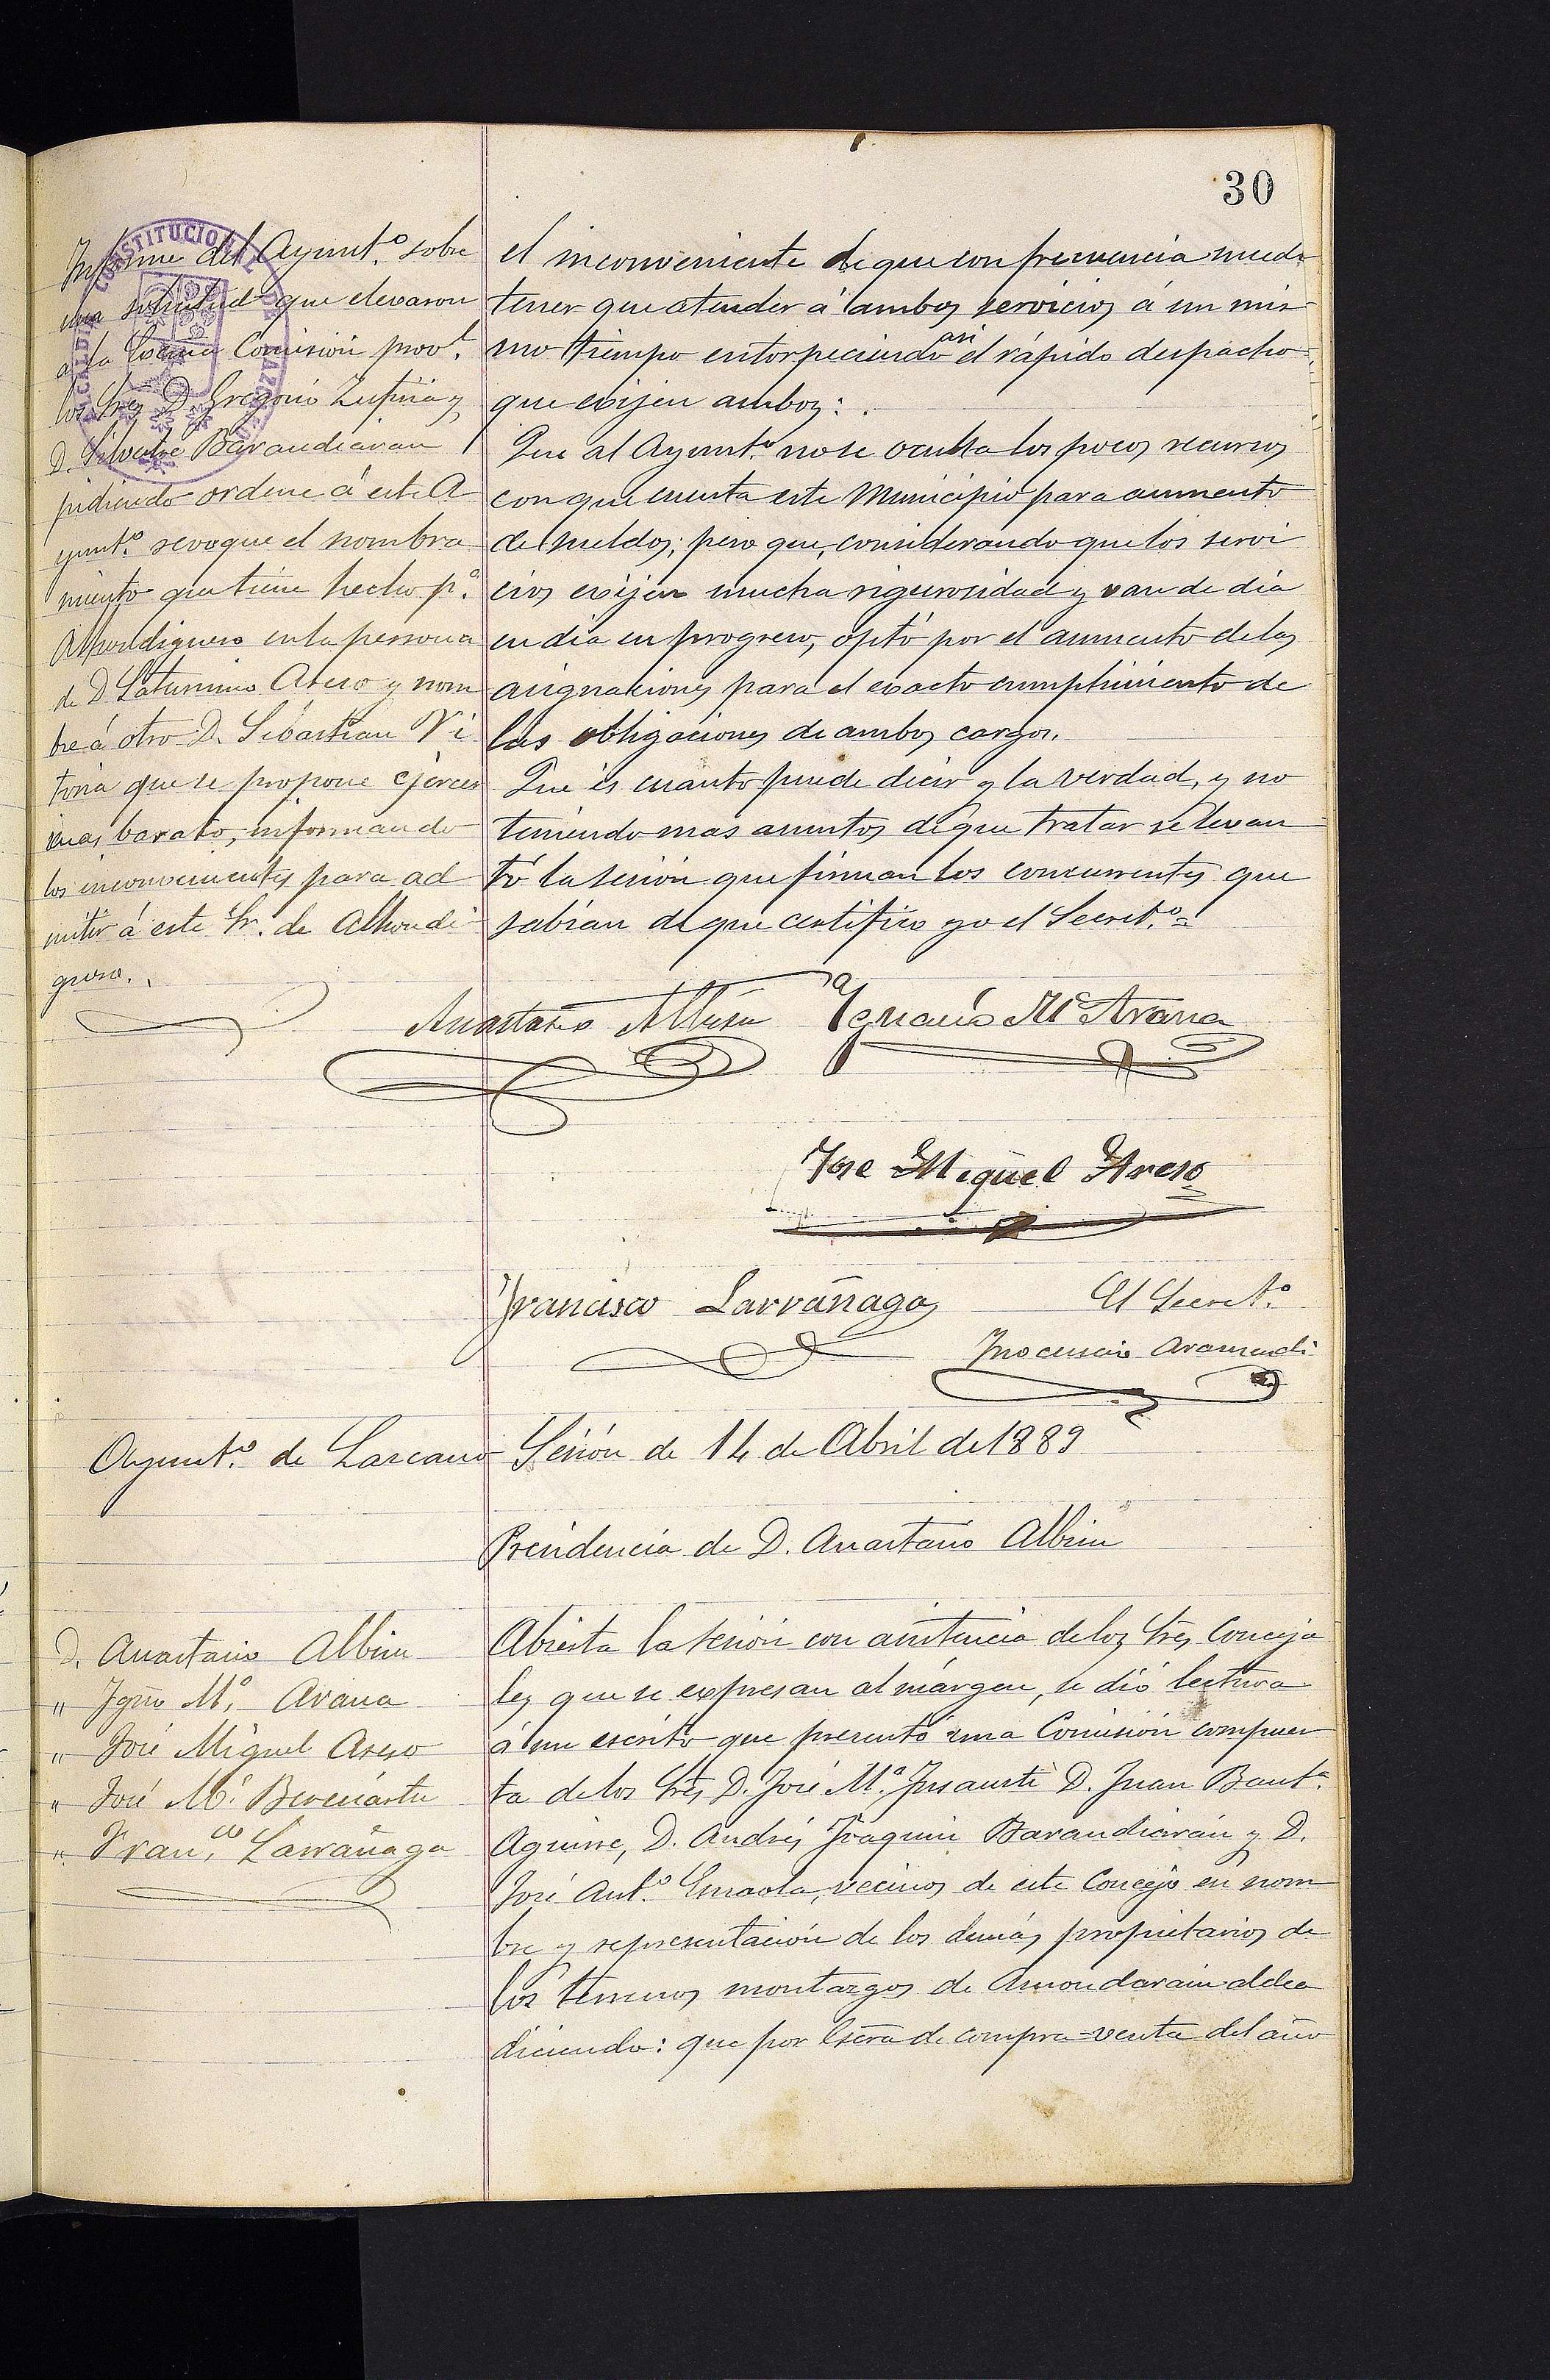 30
Informe del Ayunt.º sobre
una solicitud que elevaron
a la Excma Comisión prov.l
los Sres D. Gregorio Zufiria y
D. Silvestre Barandiaran
pidiendo ordene á este A
yunt.º revoque el nombra
miento que tiene hecho p.ª
Alhondiguero en la persona
de D Saturnino Areso y nom
bre á otro D. Sebastian Vi
toria que se propone ejercer
mas barato, informando
los inconvenientes para ad
mitir á este Sr. de Alhondi
guero.
el inconveniente de que con frecuencia puede
tener que atender á ambos servicios á un mis
mo tiempo entorpeciendo asi el rápido despacho
que exijen ambos:
Que al Ayunt.º no se oculta los pocos recursos
con que cuenta este Municipio para aumento
de sueldos; pero que, considerando que los servi
cios exijen mucha rigurosidad y van de dia
en dia en progreso, optó por el aumento de las
asignaciones para el exacto cumplimiento de
las obligaciones de ambos cargos.
Que es cuanto puede decir y la verdad, y no
teniendo mas asuntos de que tratar se levan
tó la sesión que firman los concurrentes que
sabían de que certifico yo el Secret.º =
Anastasio Albisu Ygnacio Mª Arana
Jose Miguel Areso
Francisco Larrañaga El Secret.º
Inocencio Aramendi
Ayunt.º de Lazcano Sesión de 14 de Abril de 1889
Presidencia de D. Anastasio Albisu
D. Anastasio Albisu
" Ygño M.ª Arana
" José Miguel Areso
" José M.ª
" Fran.co Larrañaga
Abierta la sesión con asistencia de los Sres Conceja
les que se expresan al márgen, se dió lectura
á un escrito que presentó una Comisión compues
ta de los Sres D. José M.ª Insausti D. Juan Baut.ª
Aguirre, D. Andrés Joaquin Barandiarán y D.
José Ant.º vecinos de este Concejo en nom
bre y representación de los demás propietarios de
los terrenos montazgos de Amondarain aldea
diciendo: que por Escra de compra-venta del año